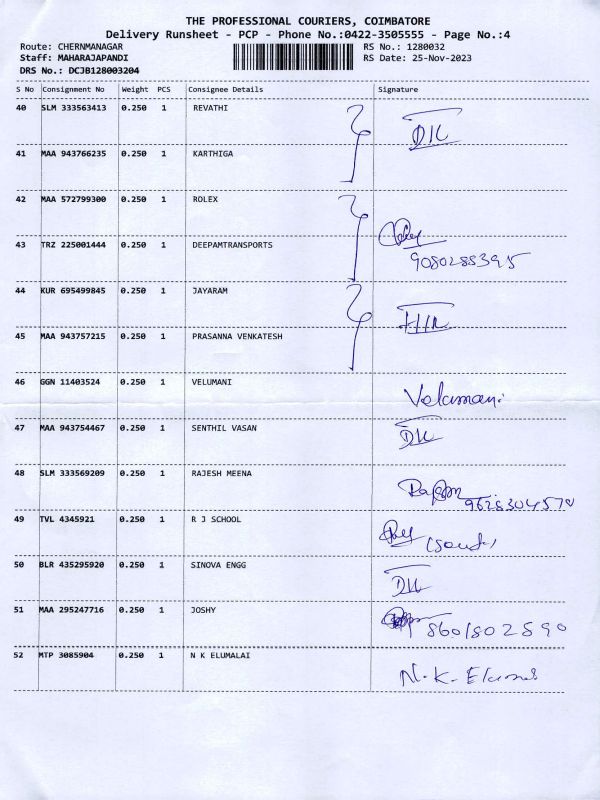 THE PROFESSIONAL COURIERS, COIMBATORE
Delivery Runsheet - PCP - Phone No.:0422-3505555 - Page No.:4
Route: CHERNMANAGAR RS No.: 1280032
Staff: MAHARAJAPANDI RS Date: 25-Nov-2023
DRS No.: DCJB128003204
S No Consignment No Weight PCS Consignee Details Signature
40 SLM 333563413 0.250 1 REVATHI
41 MAA 943766235 0.250 1 KARTHIGA
42 MAA 572799300 0.250 1 ROLEX
43 TRZ 225001444 0.250 1 DEEPAMTRANSPORTS
9080288395
44 KUR 695499845 0.250 1 JAYARAM
45 MAA 943757215 0.250 1 PRASANNA VENKATESH
46 GGN 11403524 0.250 1 VELUMANI
Velumani
47 MAA 943754467 0.250 1 SENTHIL VASAN
48 SLM 333569209 0.250 1 RAJESH MEENA
49 TVL 4345921 0.250 1 R J SCHOOL
50 BLR 435295920 0.250 1 SINOVA ENGG
51 MAA 295247716 0.250 1 JOSHY
8601802590
52 MTP 3085904 0.250 1 N K ELUMALAI
N.K.